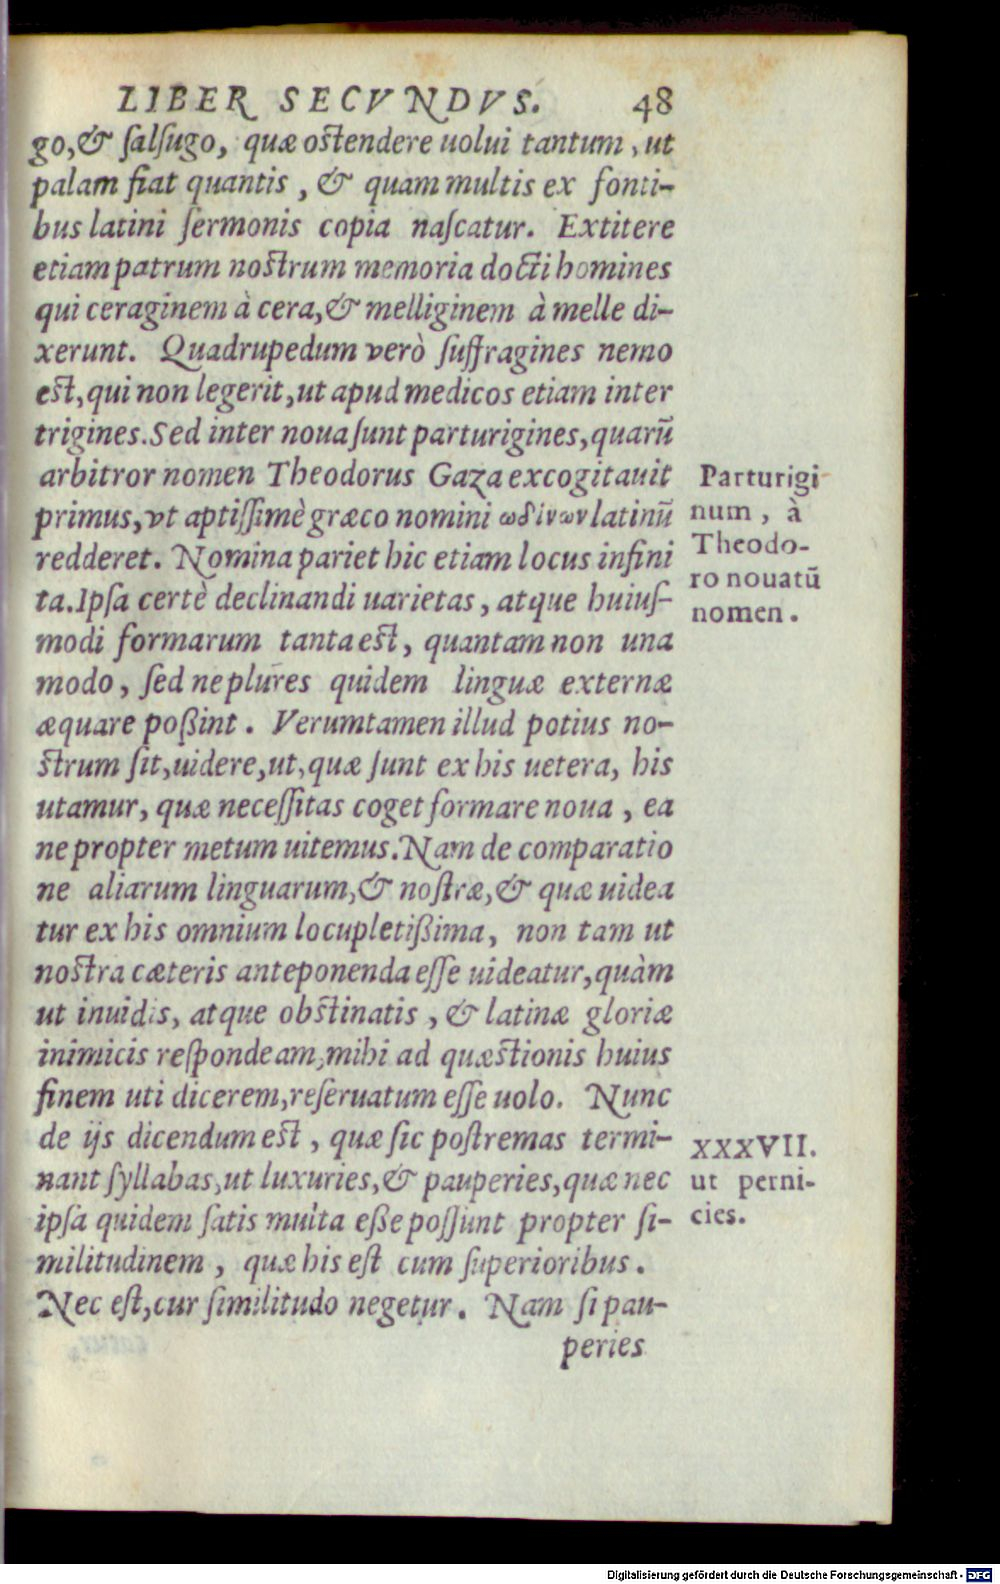 LIBER SECVNDVS. 48
go,& ſalſugo, quæ oſtendere uolui tantum, ut
palam fiat quantis, & quam multis ex fonti-
bus latini ſermonis copia naſcatur. Extitere
etiam patrum noſtrum memoria docti homines
qui ceraginem à cera,& melliginem à melle di-
xerunt. Quadrupedum verò ſuffragines nemo
eſt, qui non legerit, ut apud medicos etiam inter
trigines. Sed inter noua ſunt parturigines, quarū
arbitror nomen Theodorus Gaza excogitauit
primus, vt aptiſſimè græco nomini ωδίνων latinū
redderet. Nomina pariet hic etiam locus infini
ta. Ipſa certè declinandi uarietas, atque huiuſ-
modi formarum tanta eſt, quantam non una
modo, ſed ne plures quidem linguæ externæ
æquare poßint. Verumtamen illud potius no-
ſtrum ſit, uidere, ut, quæ ſunt ex his uetera, his
utamur, quæ neceſſitas coget formare noua, ea
ne propter metum uitemus. Nam de comparatio
ne aliarum linguarum,& noſtræ,& quæ uidea
tur ex his omnium locupletißima, non tam ut
noſtra cæteris anteponenda eſſe uideatur, quàm
ut inuidis, atque obſtinatis, & latinæ gloriæ
inimicis reſpondeam, mihi ad quæſtionis huius
finem uti dicerem, reſeruatum eſſe uolo. Nunc
de ijs dicendum eſt, quæ ſic poſtremas termi-
nant ſyllabas, ut luxuries,& pauperies, quæ nec
ipſa quidem ſatis multa eße poſſunt propter ſi-
militudinem, quæ his eſt cum ſuperioribus.
Nec eſt, cur ſimilitudo negetur. Nam ſi pau-
peries
Parturigi
num, à
Theodo-
ro nouatū
nomen.
XXXVII.
ut perni-
cies.
Digitalisierung gefördert durch die Deutsche Forschungsgemeinschaft - DFG